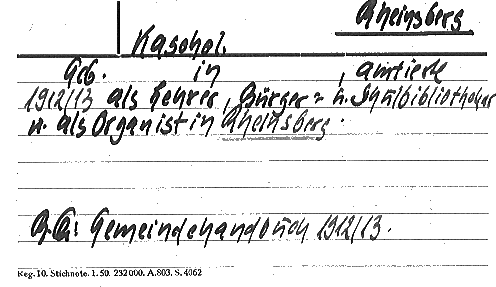 Rheinsberg
Kaschol.
Geb. in , amtierte
1912/13 als Lehrer, Bürger= u. Schulbibliothekar
u. als Organist in Rheinsberg.
Gemeindehandbuch 1912/13.
Reg. 10. Stichnote. 1. 50. 232000. A.803. S. 4062